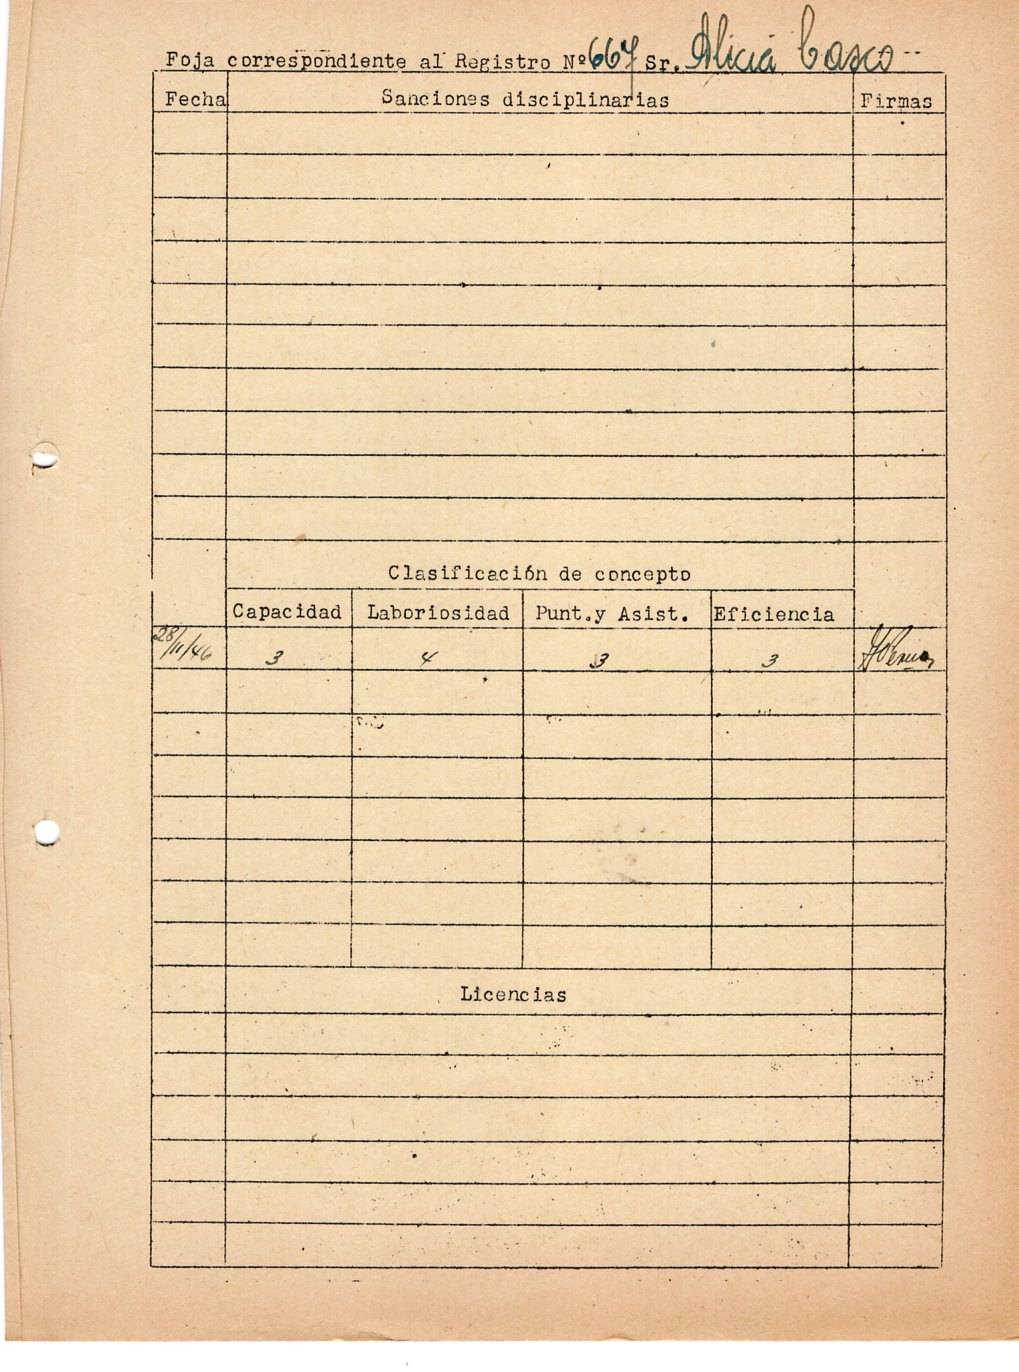 Foja correspondiente al Registro Nº667 Sr. Alicia Casco --
Fecha Sanciones disciplinarias Firmas
Clasificación de concepto
Capacidad Laboriosidad Punt.y Asist. Eficiencia
28/11/46 3 4 3 3
Licencias